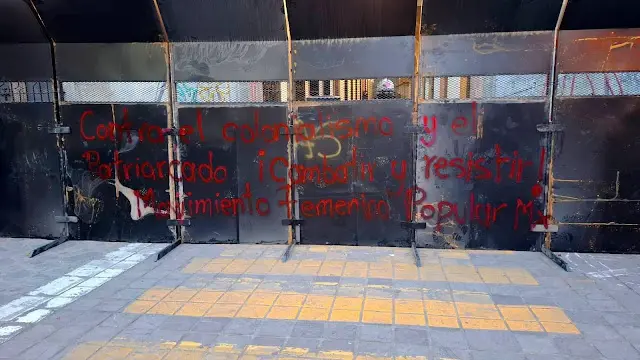 Contra el colonialismo y el
Patriarcado ¡Combatir y resistir!
Movimiento Femenino Popular